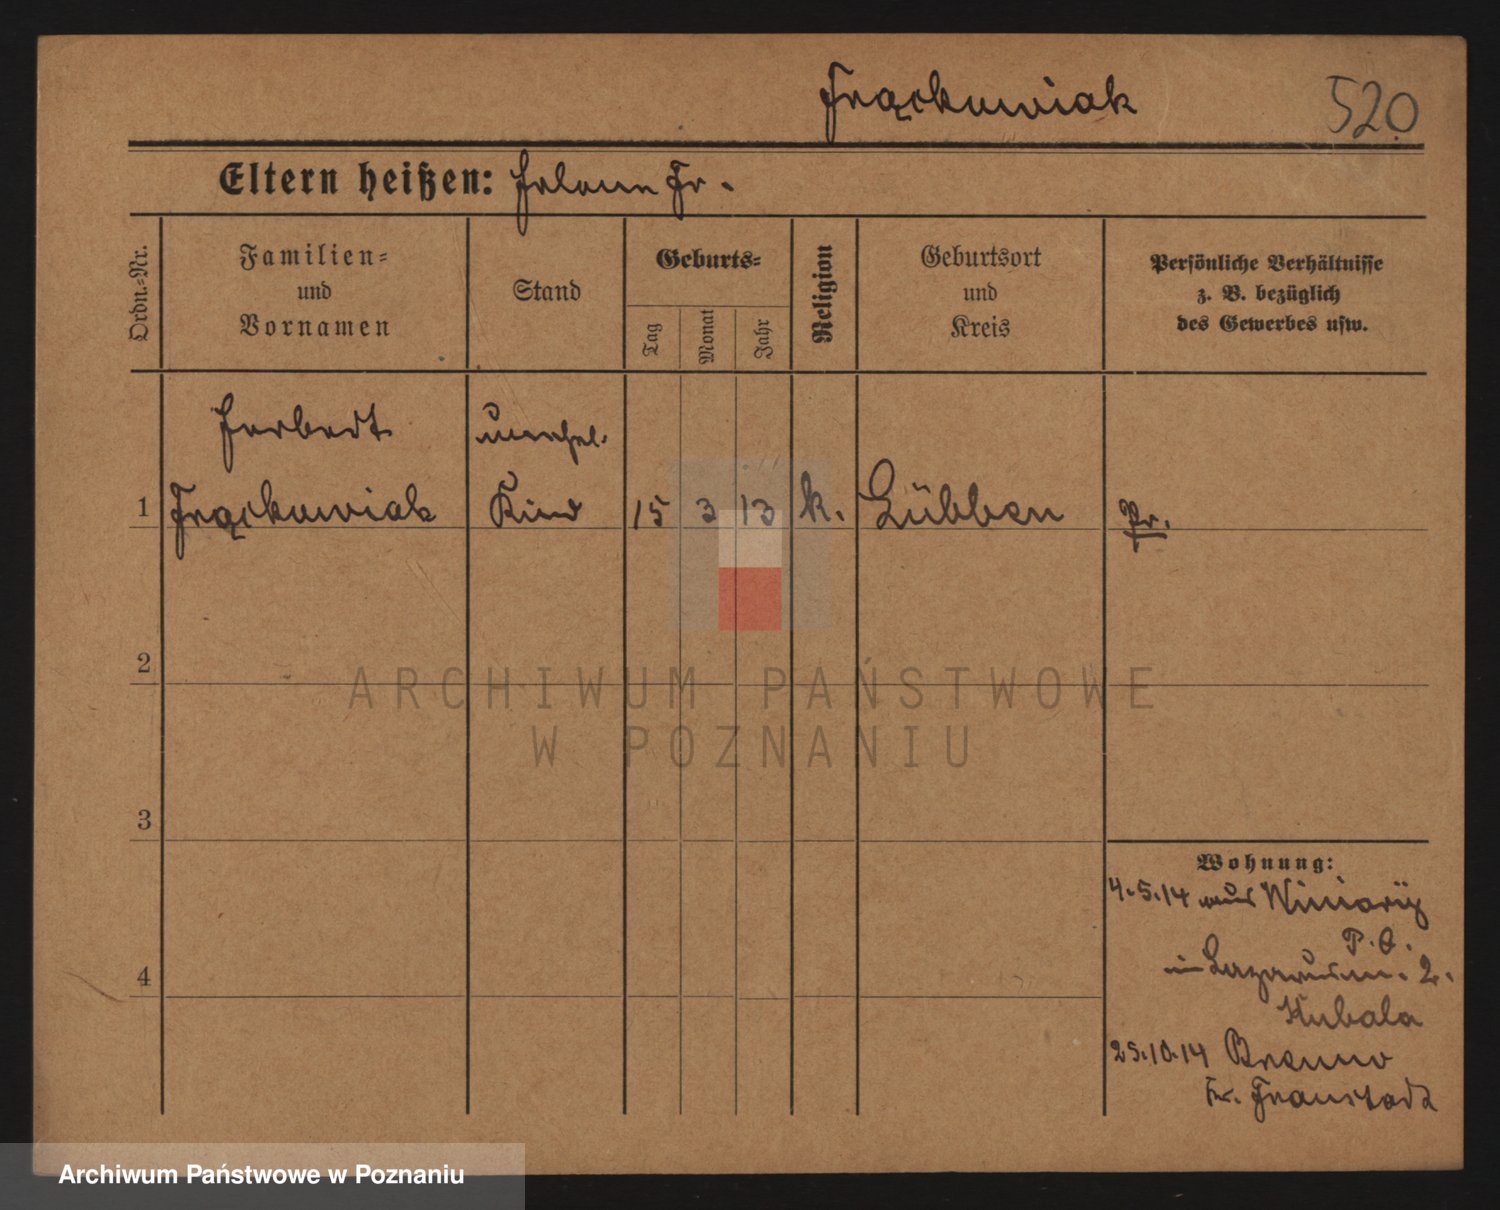 Frąckowiak 520
Eltern heißen: Helene Fr.
Ordn.-Nr.
Familien-
und
Vornamen
Stand
Geburts-
Tag
Monat
Jahr
Religion
Geburtsort
und
Kreis
Persönliche Verhältnisse
z. B. bezüglich
des Gewerbes usw.
Herbert unehel.
1 Frąckowiak Kind 15 3 13 k. Lübben Pr.
2
3
4
Wohnung:
4.5.14 aus Winiary
P. O.
in 2.
Kubala
25.10.14 Brenno
Kr. Fraustadt
ARCHIWUM PAŃSTWOWE
W POZNANIU
Archiwum Państwowe w Poznaniu